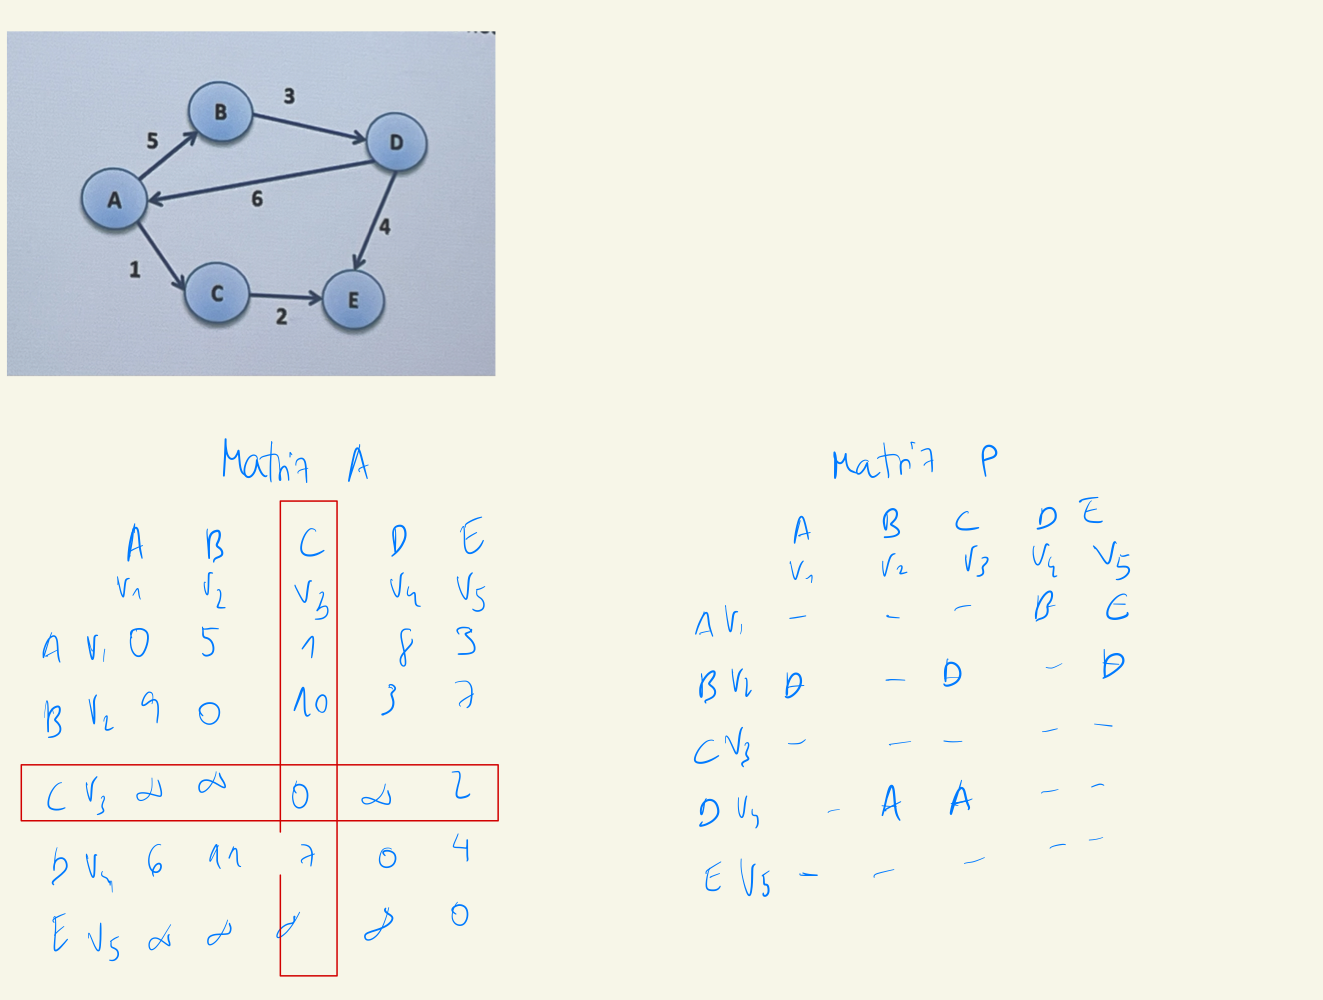 B
3
D
5
A
6
4
1
C
E
2
Matriz A
A B C D E
V1 V2 V3 V4 V5
A V1 0 5 1 8 3
B V2 9 0 10 3 7
C V3 ∞ ∞ 0 ∞ 2
D V4 6 11 7 0 4
E V5 ∞ ∞ ∞ ∞ 0
Matriz P
A B C D E
V1 V2 V3 V4 V5
A V1 - - - B C
B V2 D - D - D
C V3 - - - - -
D V4 - A A - -
E V5 - - - - -